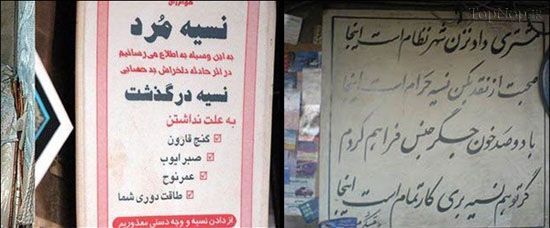 نسیه مُرد
به این وسیله به اطلاع می رسانیم
در اثر حادثه دلخراش بد حسابی
نسیه درگذشت
به علت نداشتن
گنج قارون
صبر ایوب
عمر نوح
طاقت دوری شما
از دادن نسیه و وجه دستی معذوریم
مشتری داد و نزن شهر نظام است اینجا
صحبت از نقد بکن نسیه حرام است اینجا
با دو صد خون جگر جنس فراهم کردم
گر تو هم نسیه بری کار تمام است اینجا